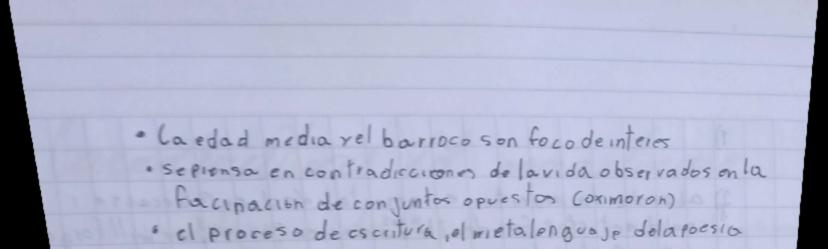 • la edad media y el barroco son foco de interes
• se piensa en contradicciones de la vida observados en la
facinación de conjuntos opuestos (oximoron)
• el proceso de escritura, el metalenguaje de la poesia